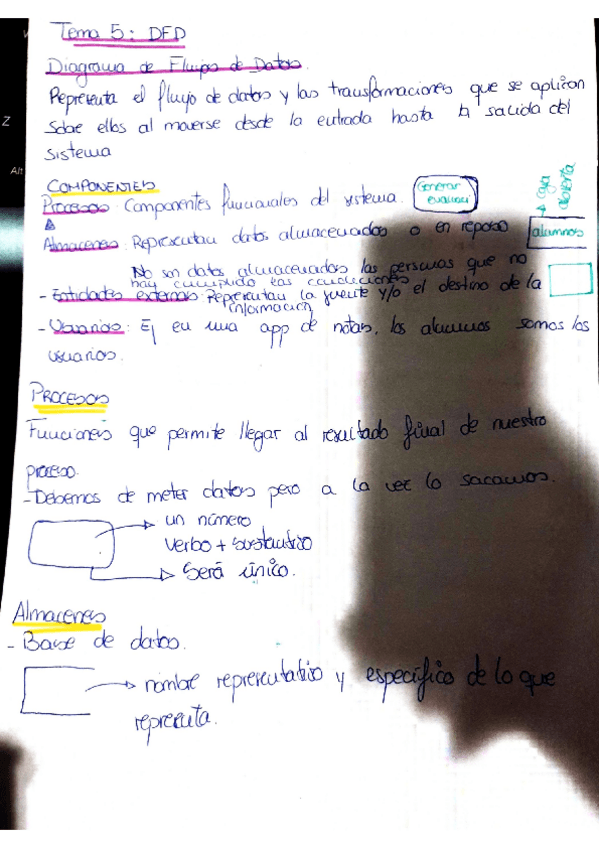 Tema 5: DFD
Diagrama de Flujos de Datos.
Representa el flujo de datos y las transformaciones que se aplican
sobre ellos al moverse desde la entrada hasta la salida del
sistema
COMPONENTES
Procesos: Componentes funcionales del sistema.
Generar
evaluaci
Almacenes: Representan datos almacenados o en reposo
alumnos
caja
abierta
No son datos almacenados las personas que no
hay cumplido las condiciones
- Entidades externas: Representan la fuente y/o el destino de la
información
- Usuarios: Ej en una app de notas, los alumnos somos los
usuarios.
PROCESOS
Funciones que permite llegar al resultado final de nuestro
proceso.
- Debemos de meter datos pero a la vez lo sacamos.
un número
Verbo + sustantivo
Será único.
Almacenes
- Base de datos.
nombre representativo y específico de lo que
representa.
Z
Alt